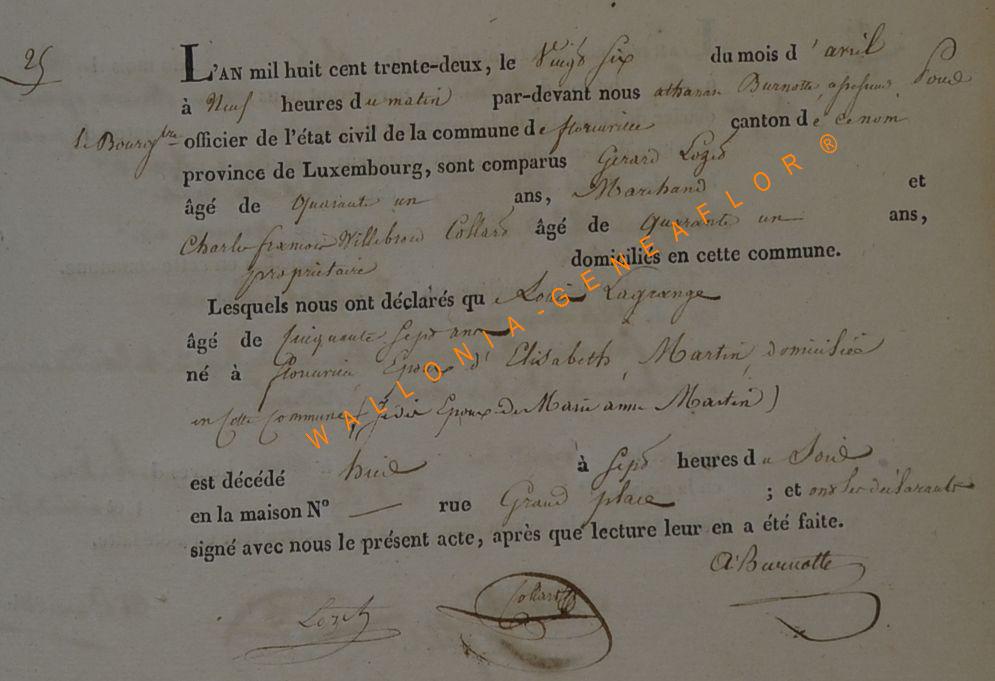 25
L'AN mil huit cent trente-deux, le Vingt Six du mois d'avril
à Neuf heures du matin par-devant nous athanase Burnotte, assesseur, Pour
le Bourgtre officier de l'état civil de la commune de florenville canton de ce nom
province de Luxembourg, sont comparus Gerard Lozet
âgé de Quarante un ans, Marchand et
Charles françois Willebrord Collard âgé de Quarante un ans,
propriétaire domiciliés en cette commune.
Lesquels nous ont déclarés qu Louis Lagrange
âgé de Cinquante Sept ans
né à florenville Epoux d'Elisabeth Martin, domiciliée
en Cette Commune (je dis Epoux de Marie anne Martin)
est décédé hier à Sept heures du Soir
en la maison N° — rue Grand place ; et ont les déclarants
signé avec nous le présent acte, après que lecture leur en a été faite.
A Burnotte
Lozet Collard
WALLONIA-GENEAFLOR ®